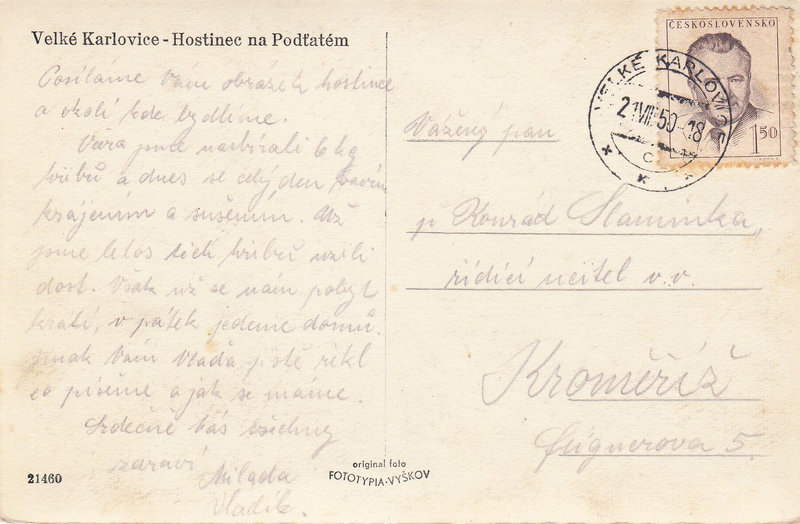 Velké Karlovice - Hostinec na Podťatém
Posíláme Vám obrázek hostince
a okolí kde bydlíme.
Včera jsme nasbírali 6 kg
hribů a dnes se celý den bavím
krájením a sušením. Už
jsme letos těch hribů užili
dost. Však už se nám pobyt
krátí, v pátek jedeme domů.
Jinak Vám Vlaďa jistě řekl
co píšeme a jak se máme.
Srdečně Vás všechny
zdraví
Milada
Vladík.
21460
original foto
FOTOTYPIA-VYŠKOV
ČESKOSLOVENSKO
1.50
VELKÉ KARLOVICE
21 VIII 50 -18
C
Vážený pan
p. Konrád Slaminka,
řídící učitel v.v.
Kroměříž
5.